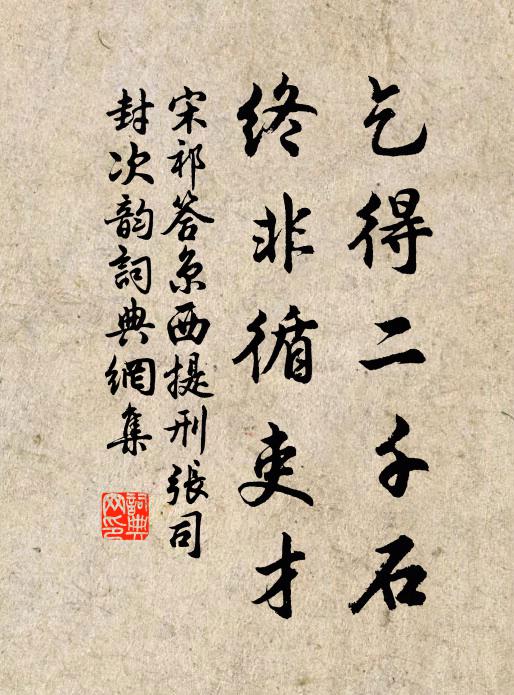 乞得二千石
终非循吏才
宋祁答京西提刑張司
封次韵詞典網集
詞典网印